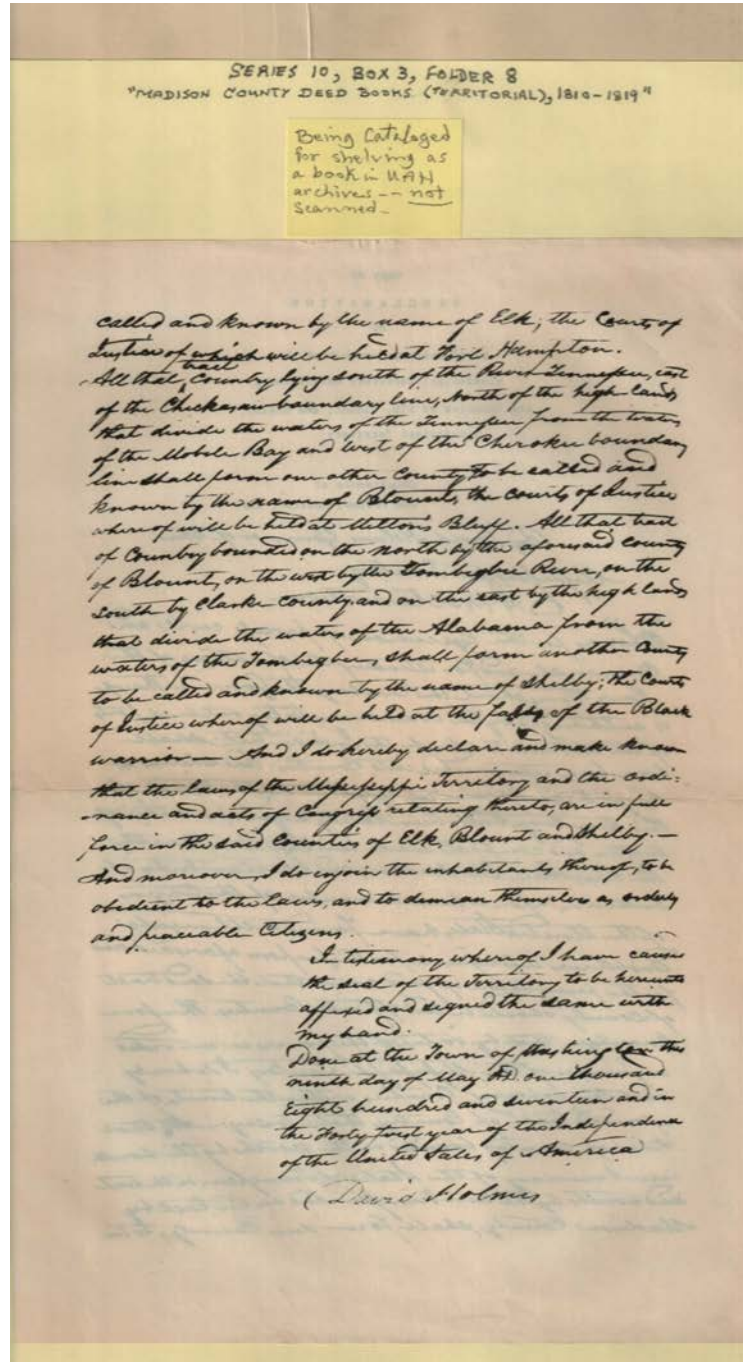 SERIES 10, BOX 3, FOLDER 8
"MADISON COUNTY DEED BOOKS (TERRITORIAL), 1810-1819"
Being Cataloged
for shelving as
a book in UAH
archives -- not
scanned-
called and known by the name of Elk; the Courts of
Justice of which will be held at Fort Hampton.
tract
All that Country lying south of the River Tennessee, east
of the Chickasaw boundary line, North of the high lands
that divide the waters of the Tennessee from the waters
of the Mobile Bay and west of the Cherokee boundary
line shall form one other County to be called and
known by the name of Blount, the courts of Justice
whereof will be held at Meltons Bluff. All that tract
of Country bounded on the north by the aforesaid County
of Blount, on the west by the Tombigbee River, on the
south by Clarke County and on the east by the high lands
that divide the waters of the Alabama from the
waters of the Tombigbee, shall form another County
to be called and known by the name of Shelby; the Courts
of Justice whereof will be held at the falls of the Black
warrior — And I do hereby declare and make known
that the laws of the Mississippi Territory and the ordi-
-nance and acts of Congress relating thereto, are in full
force in the said Counties of Elk, Blount and Shelby. —
And moreover, I do enjoin the inhabitants thereof, to be
obedient to the laws, and to demean themselves as orderly
and peaceable Citizens.
In testimony whereof I have caused
the seal of the Territory to be hereunto
affixed and signed the same with
my hand.
Done at the Town of Washington this
ninth day of May AD. one thousand
Eight hundred and seventeen and in
the Forty first year of the Independence
of the United States of America
(David Holmes